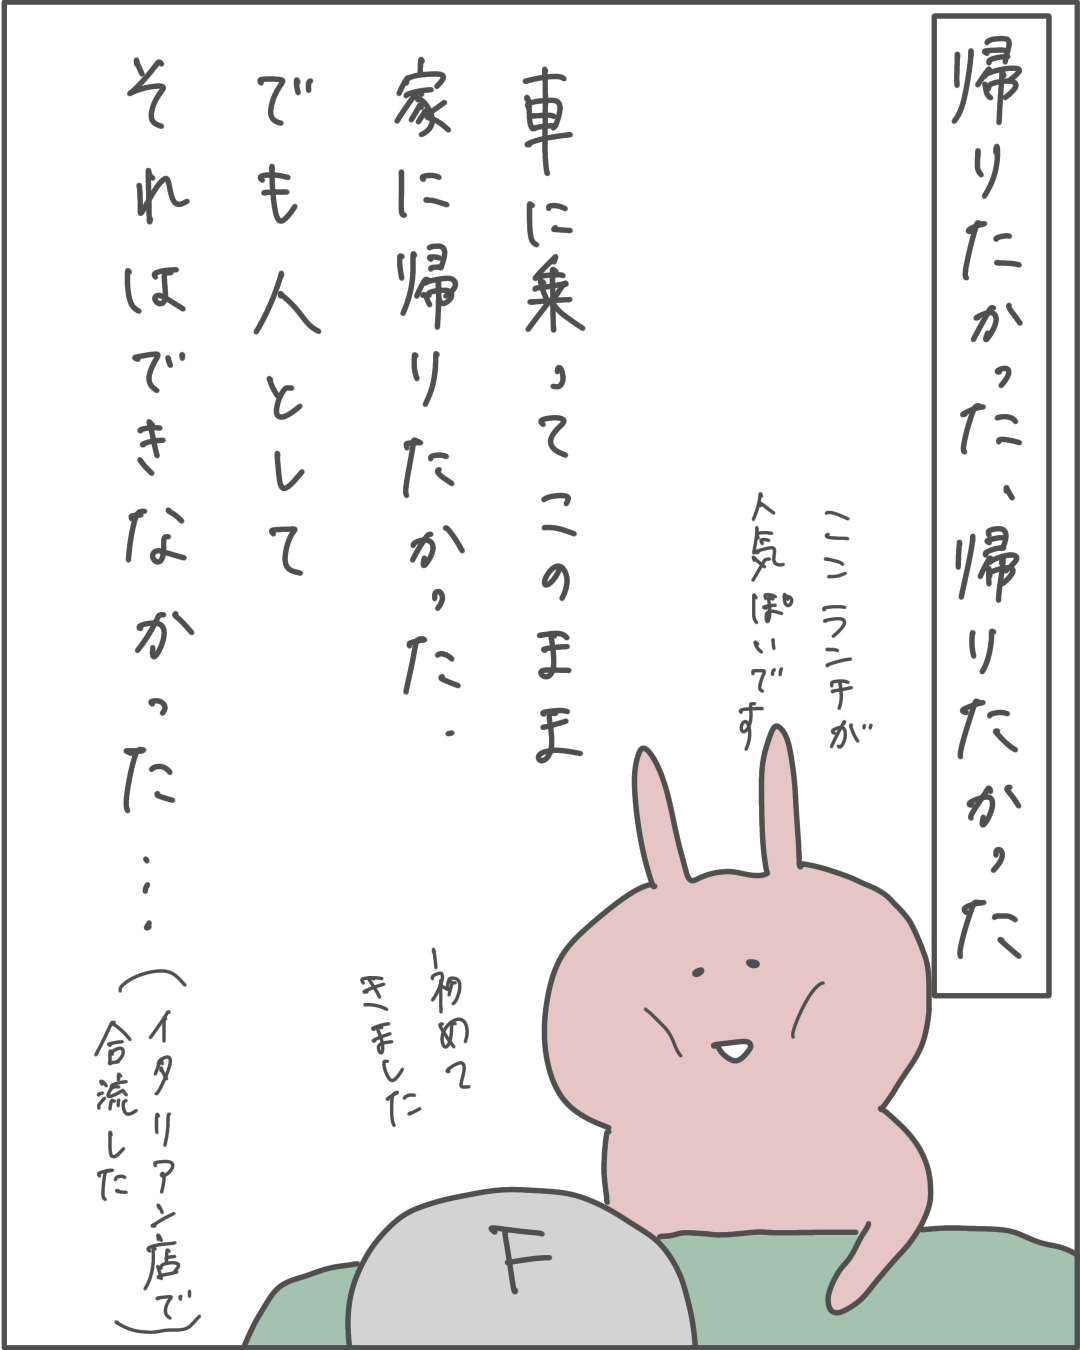 帰りたかった、帰りたかった
ここランチが
人気ぽいです
車に乗ってこのまま
家に帰りたかった.
でも人として
それはできなかった…
(イタリアン店で
合流した)
初めて
きました
F